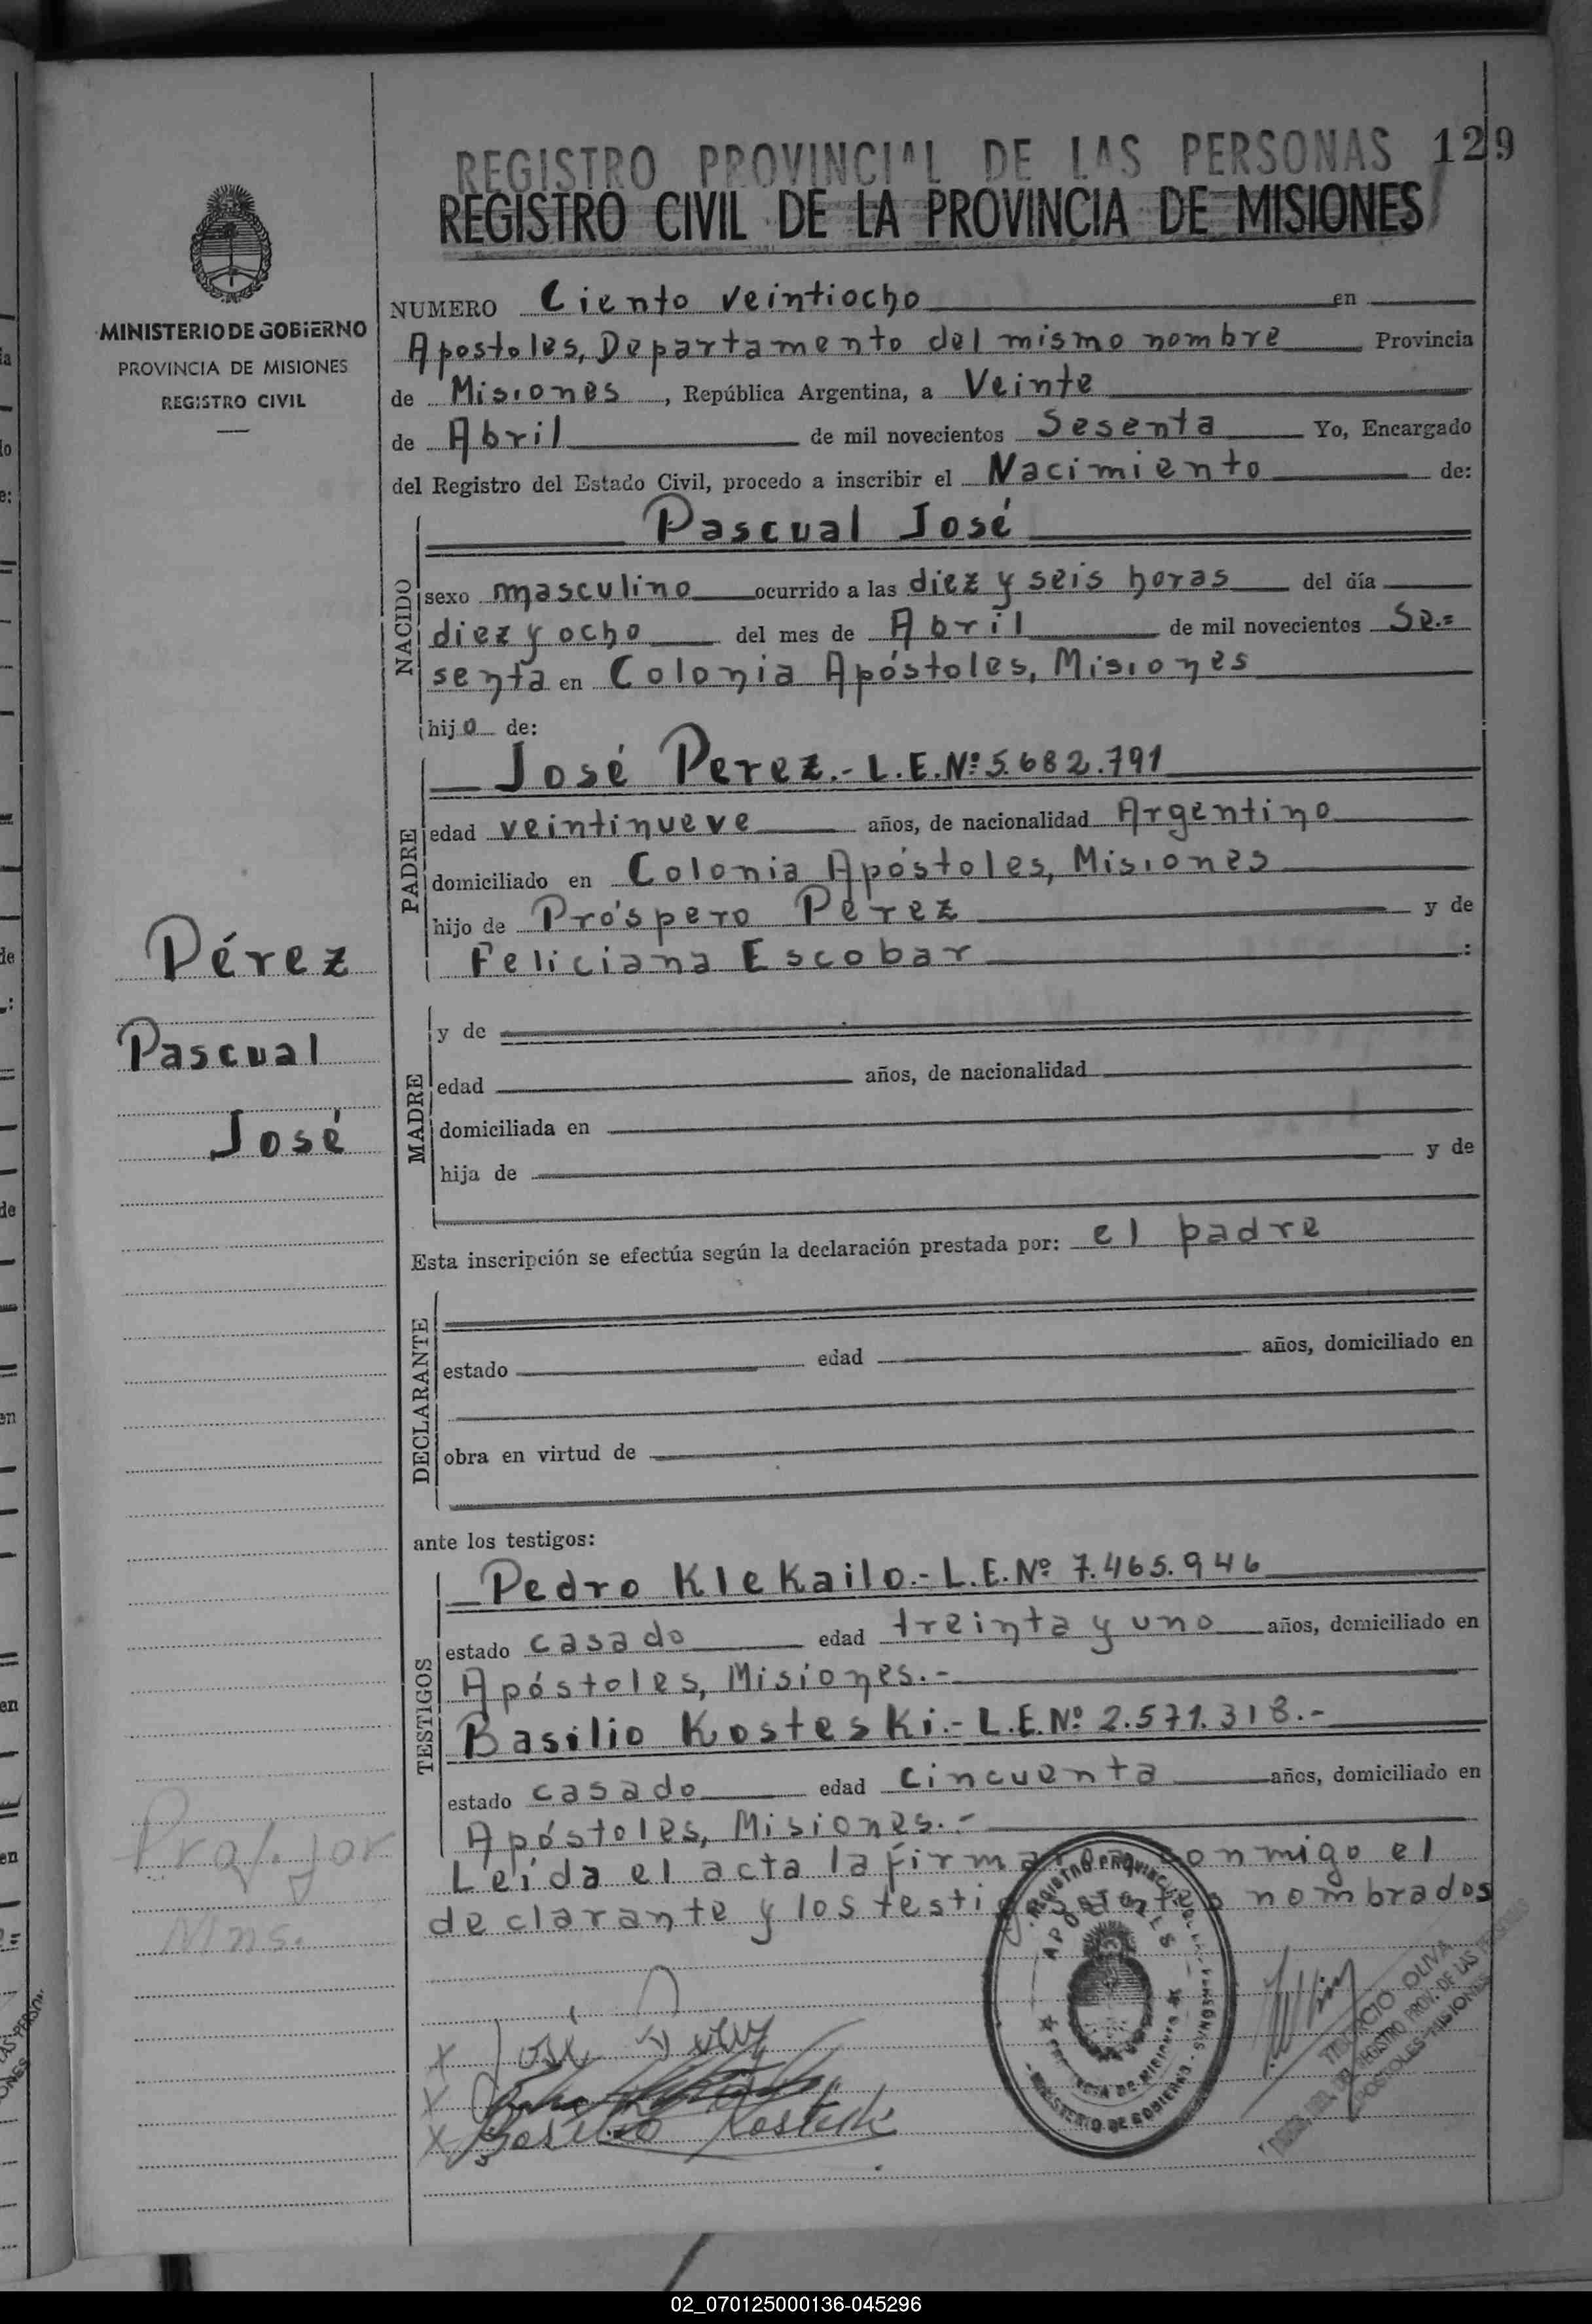 REGISTRO PROVINCIAL DE LAS PERSONAS 129
REGISTRO CIVIL DE LA PROVINCIA DE MISIONES
MINISTERIO DE GOBIERNO
PROVINCIA DE MISIONES
REGISTRO CIVIL
NUMERO Ciento veintiocho en
Apostoles, Departamento del mismo nombre Provincia
de Misiones, República Argentina, a Veinte
de Abril de mil novecientos Sesenta Yo, Encargado
del Registro del Estado Civil, procedo a inscribir el Nacimiento de:
NACIDO
Pascual José
sexo masculino ocurrido a las diez y seis horas del día
diez y ocho del mes de Abril de mil novecientos Se.=
senta en Colonia Apóstoles, Misiones
hijo de:
PADRE
José Perez.- L.E.Nº 5.682.791
edad veintinueve años, de nacionalidad Argentino
domiciliado en Colonia Apóstoles, Misiones
hijo de Próspero Pérez y de
Feliciana Escobar :
Pérez
Pascual
José
MADRE
y de
edad años, de nacionalidad
domiciliada en
hija de y de
Esta inscripción se efectúa según la declaración prestada por: el padre
DECLARANTE
estado edad años, domiciliado en
obra en virtud de
ante los testigos:
TESTIGOS
Pedro Klekailo.- L.E.Nº 7.465.946
estado casado edad treinta y uno años, domiciliado en
Apóstoles, Misiones.-
Basilio Kosteski.- L.E.Nº 2.571.318.-
estado casado edad cincuenta años, domiciliado en
Apóstoles, Misiones.-
Leída el acta la firman conmigo el
declarante y los testigos antes nombrados
REGISTRO PROVINCIAL DE LAS PERSONAS
APOSTOLES
PROVINCIA DE MISIONES
MINISTERIO DE GOBIERNO
x José Perez
x
x Basilio Kosteski
OLIVA
REGISTRO PROV. DE LAS PERSONAS
APOSTOLES-MISIONES
02_070125000136-045296